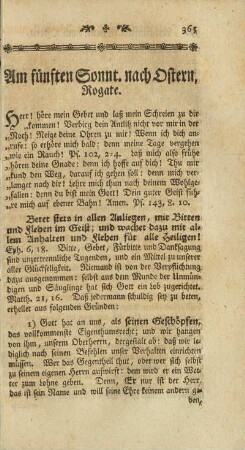 365
Am fünften Sonnt. nach Ostern,
Rogate.
Herr! höre mein Gebet und laß mein Schreien zu dir
kommen! Verbirg dein Antlitz nicht vor mir in der
Noth! Neige deine Ohren zu mir! Wenn ich dich an-
rufe: so erhöre mich bald; denn meine Tage vergehen
wie ein Rauch! Ps. 102, 2-4. daß mich also frühe
hören deine Gnade: denn ich hoffe auf dich! Thu mir
kund den Weg, darauf ich gehen soll: denn mich ver-
langet nach dir! und lehr mich thun nach deinem Wohlge-
fallen: denn du bist mein Gott! Dein guter Geist füh-
re mich auf ebener Bahn! Amen. Ps. 143, 8. 10.
Betet stets in allen Anliegen, mit Bitten
und Flehen im Geist; und wachet dazu mit al-
lem Anhalten und Flehen für alle Heiligen!
Eph. 6, 18. Bitte, Gebet, Fürbitte und Danksagung
sind unzertrennliche Tugenden, und ein Mittel zu unserer
aller Glückseligkeit. Niemand ist von der Verpflichtung,
dazu ausgenommen. Selbst aus dem Munde der Unmün-
digen und Säuglinge hat sich Gott ein Lob zugerichtet.
Matth. 21, 16. Daß jedermann schuldig sey zu beten,
erhellet aus folgenden Gründen:
1) Gott hat an uns, als seinen Geschöpfen,
das vollkommenste Eigenthumsrecht; und wir hangen
von ihm, unserm Oberherrn, dergestalt ab: daß wir le-
diglich nach seinen Befehlen unser Verhalten einrichten
müssen. Wer das Gegentheil thut, oder wer sich selbst
zu seinem eigenen Herrn aufwirft: dem wird er ein Wet-
ter zum Lohne geben. Denn, Er nur ist der Herr,
das ist sein Name und will seine Ehre keinem andern ge-
ben,